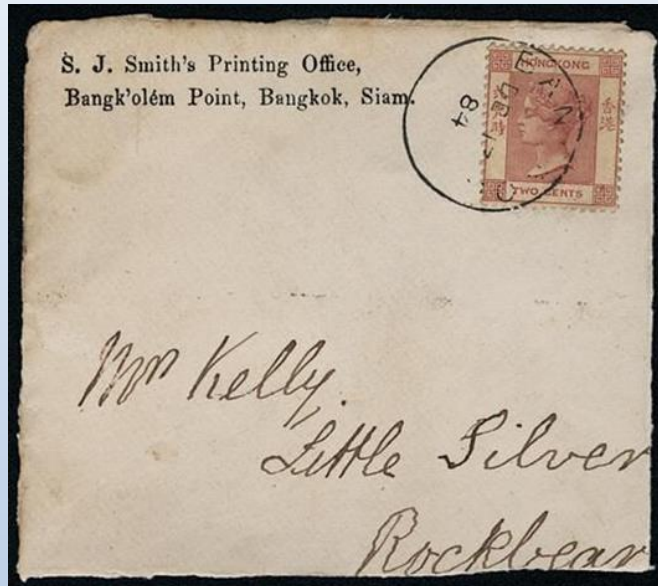 S. J. Smith's Printing Office,
Bangk'olém Point, Bangkok, Siam.
HONG KONG
香港
TWO CENTS
84
Mrs Kelly.
Little Silver
Rockbear